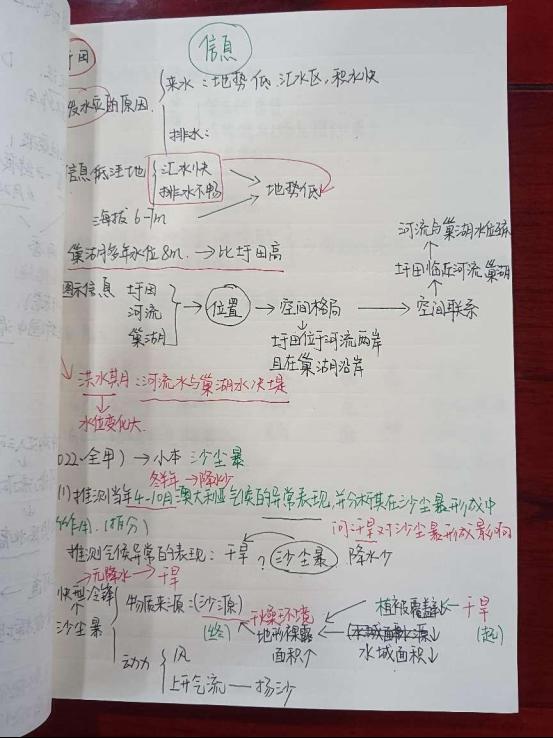 信息
圩田
来水：地势低.汇水区，积水快
发水灾的原因
排水：
信息 低洼地 汇水快
排水不畅
地势低
海拔6-7m
巢湖多年水位8m. →比圩田高
河流与巢湖水位
圩田临近河流 巢湖
图示信息 圩田
河流
巢湖
→位置→空间格局→空间联系
圩田位于河流两岸
且在巢湖沿岸
洪水期月：河流水与巢湖水决堤
水位变化大.
022.全甲）→小本 沙尘暴
冬半年→降水少
(1)推测当年4-10月澳大利亚气候的异常表现，并分析其在沙尘暴形成中
的作用.（拆分）
问干旱对沙尘暴形成影响
推测气候异常的表现：干旱 ? 沙尘暴 降水少
→无降水→干旱
快型冷锋
沙尘暴
物质来源：(沙源) 干燥环境 植被覆盖↓←干旱
(终) 地面裸露 (水域面积水源↓ (起)
面积↑ 水域面积↓
动力 风
上升气流—扬沙